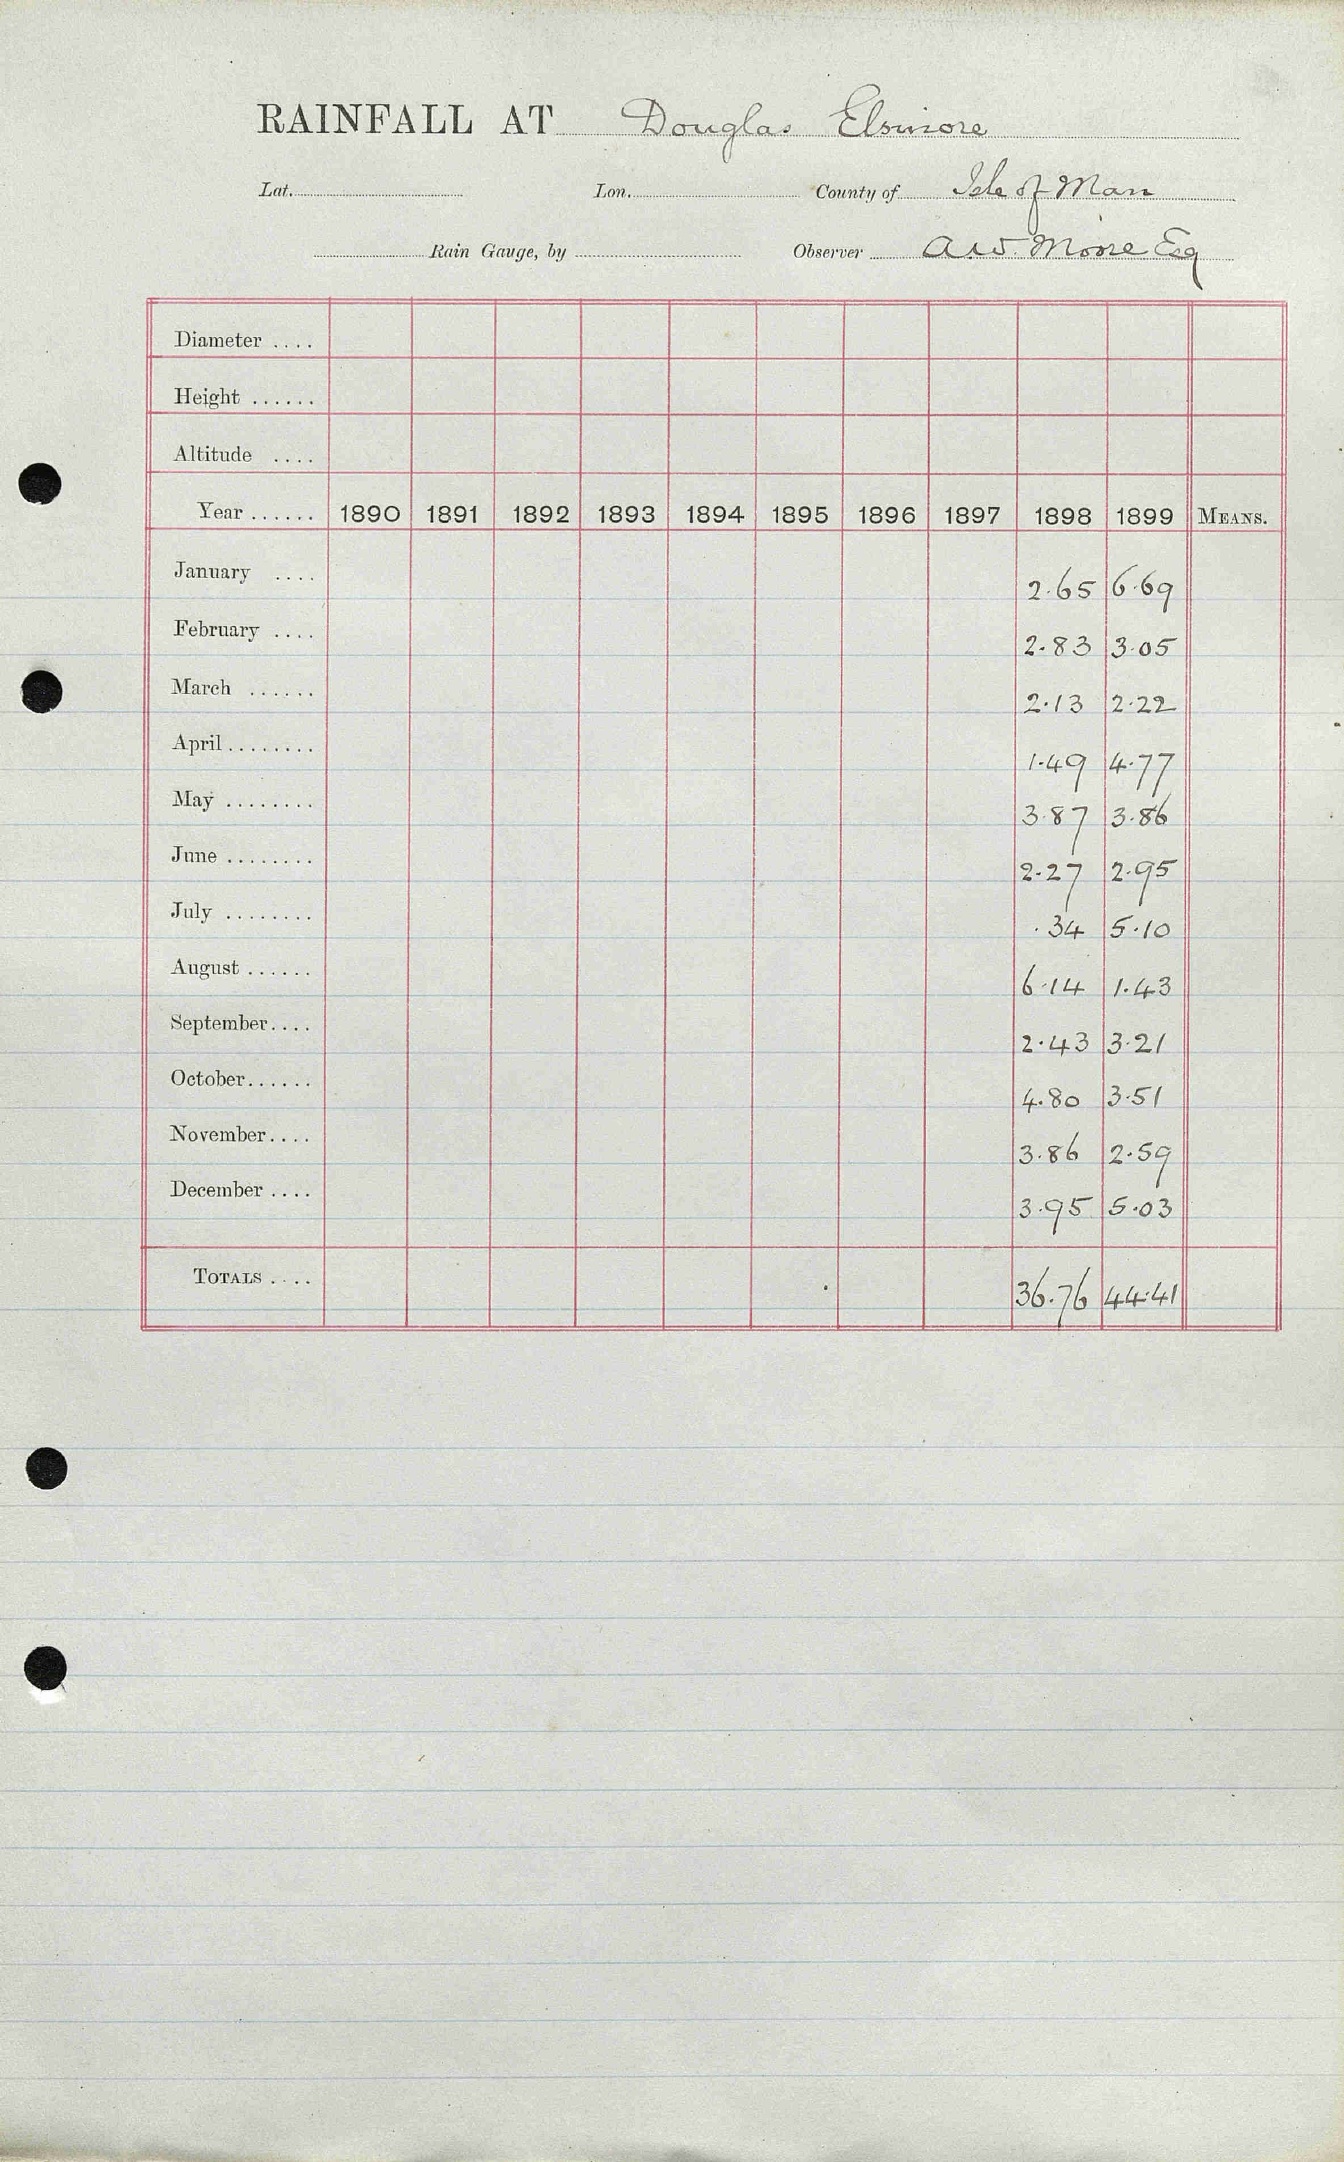 RAINFALL AT Douglas Elsinore
Lat. Lon. County of Isle of Man
Rain Gauge, by Observer A.W. Moore Esq
Diameter ....
Height ......
Altitude ....
Year ...... 1890 1891 1892 1893 1894 1895 1896 1897 1898 1899 MEANS.
January .... 2.65 6.69
February .... 2.83 3.05
March ...... 2.13 2.22
April ........ 1.49 4.77
May ........ 3.87 3.86
June ........ 2.27 2.95
July ........ .34 5.10
August ...... 6.14 1.43
September.... 2.43 3.21
October...... 4.80 3.51
November.... 3.86 2.59
December .... 3.95 5.03
TOTALS .... 36.76 44.41